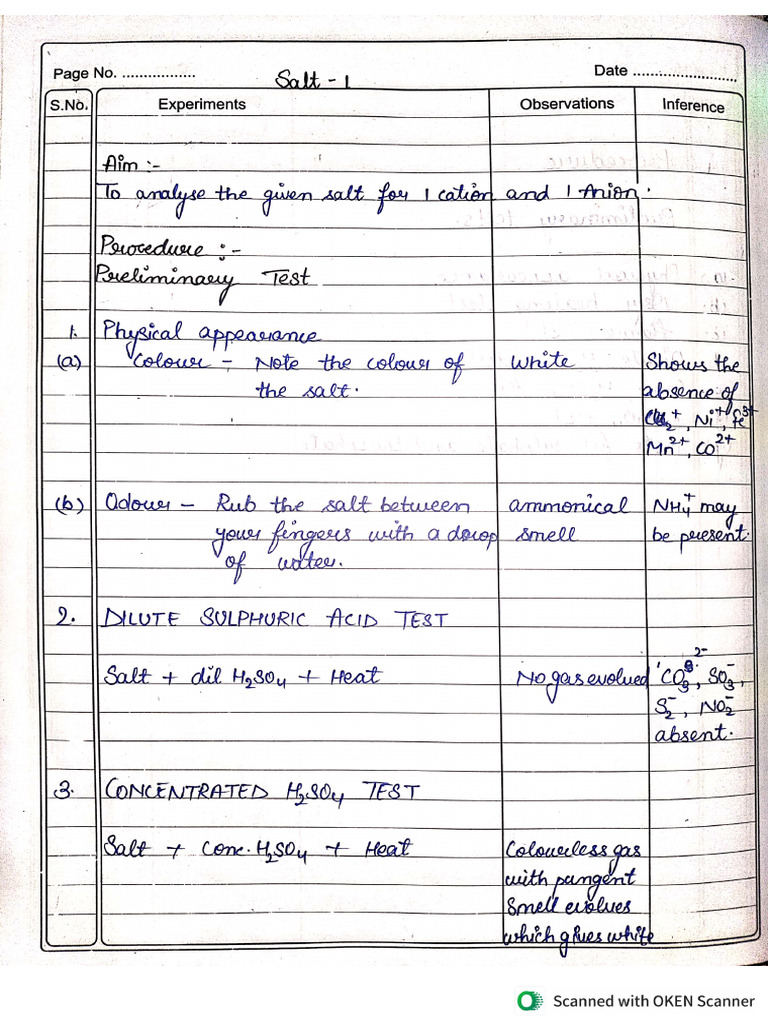 Page No. .................
Salt - 1
Date ........................
S.No. Experiments Observations Inference
Aim :-
To analyse the given salt for 1 cation and 1 Anion.
Procedure :-
Preliminary Test
1. Physical appearance
(a) Colour - Note the colour of White Shows the
the salt. absence of
Ni²⁺, Fe³⁺
Mn²⁺, Co²⁺
(b) Odour - Rub the salt between ammonical NH₄⁺ may
your fingers with a drop smell be present.
of water.
2. DILUTE SULPHURIC ACID TEST
Salt + dil H₂SO₄ + Heat No gas evolved CO₃²⁻, SO₃⁻,
S₂⁻, NO₂⁻
absent.
3. CONCENTRATED H₂SO₄ TEST
Salt + Conc. H₂SO₄ + Heat Colourless gas
with pungent
Smell evolves
which gives white
Scanned with OKEN Scanner